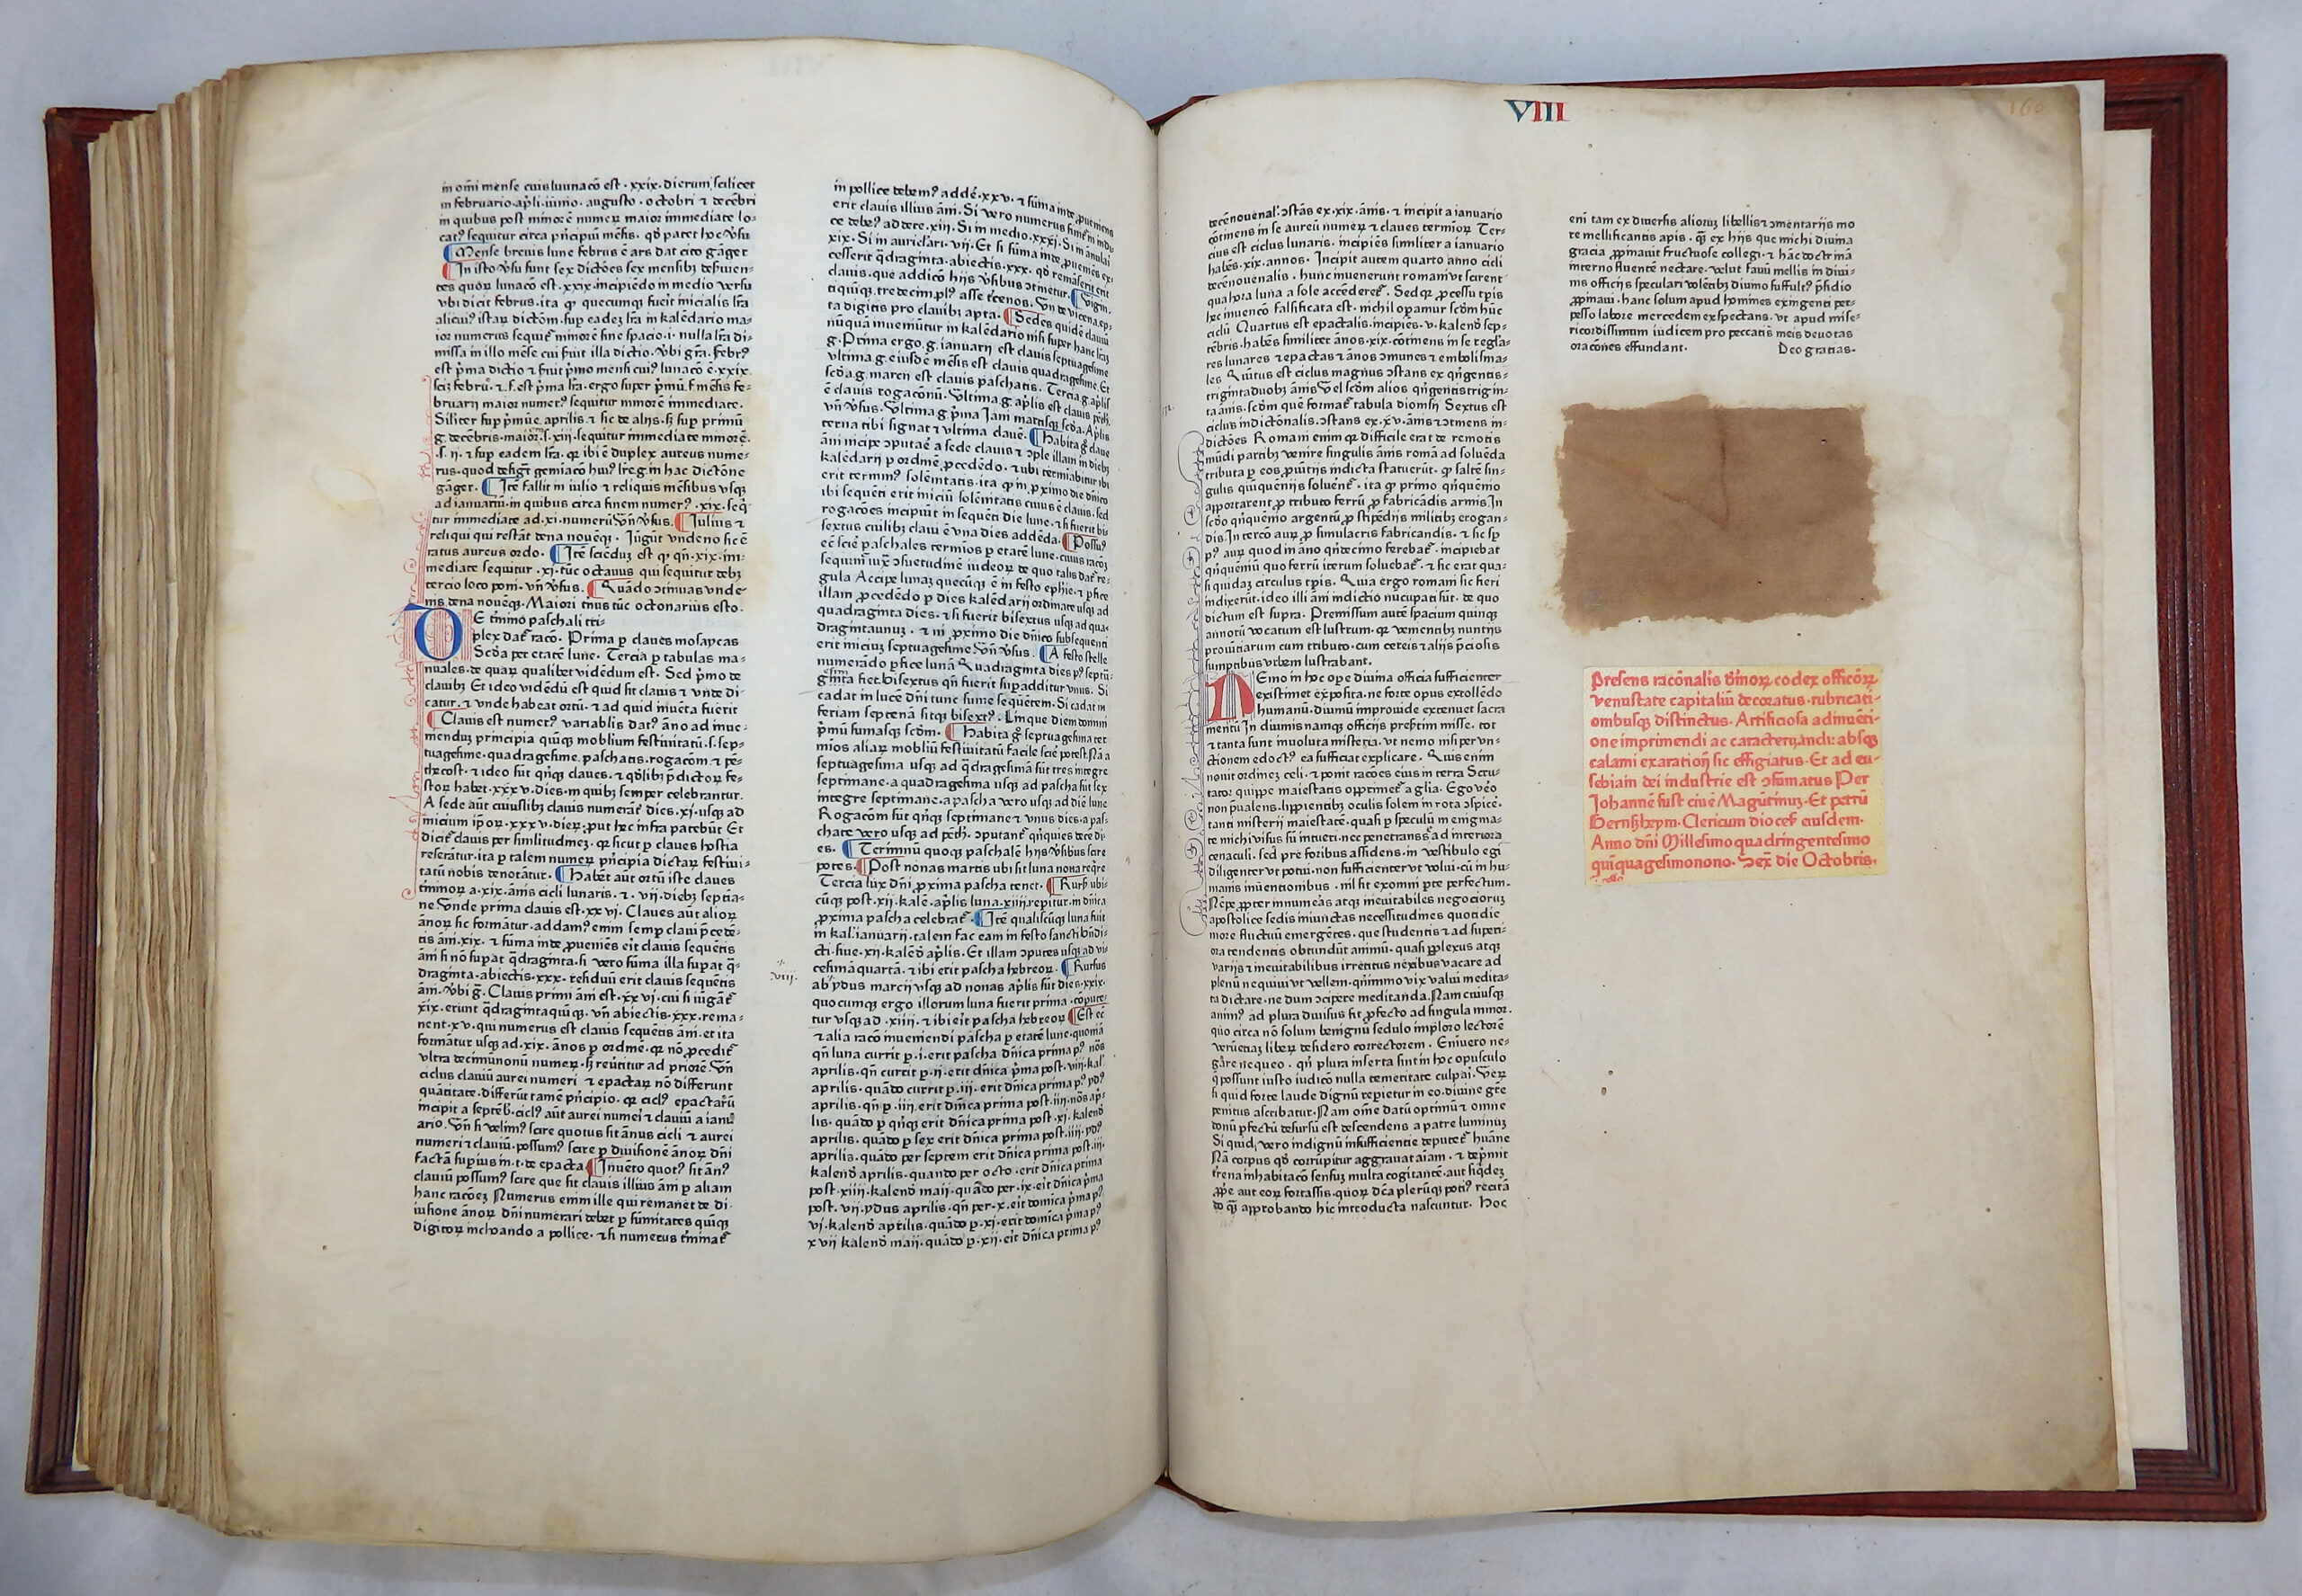 in om̄i mense cuiꝰ lunacō est · xxix · dierum, scilicet
in februario · ap̄li · iunio · augusto · octobri ⁊ decēbri
in quibus post minorē numeꝝ maior immediate lo-
catꝰ sequitur circa p̄ncipiū mēsis · qd̓ patet hoc v̓su
Mense breuis lune februs ē ars dat cito gāger
In isto v̓su sunt sex dictōes sex mensibꝫ deseruien-
tes quoꝝ lunacō est · xxix · incipiēdo in medio versu
vbi dicit februs · ita ꝙ quecumqꝫ fuerit inicialis lr̄a
alicuiꝰ istaꝝ dictōm · sup eadeꝫ lr̄a in kalēdario ma-
ior numerus sequit᷑ minorē sine spacio · i · nulla lr̄a di-
missa in illo mēse cui seruit illa dictio · vbi gr̄a · febrꝰ
est p̄ma dictio
bruarij maior numerꝰ sequitur minorē immediate ·
Silīter sup p̄mū e · aprilis ⁊ sic de alijs · sꝫ sup primū
g · decēbris · maior · s · xiij · sequitur immediate minorē ·
· s · ij · ⁊ sup eadem lr̄a · qꝛ ibi ē duplex aureus nume-
rus · quod desig̓t gemiacō huiꝰ lr̄e g · in hac dictōne
gāger · Itē fallit in iulio ⁊ reliquis mēsibus vsqꝫ
ad ianuariū · in quibus circa finem numerꝰ · xix · seq̓-
tur immediate ad · xi · numerū Vn̄ v̓sus · Iulius ⁊
reliqui qui restāt dena nouēqꝫ · Iūgūt vndeno sic ē
ratus aureus ordo · Itē sciēduꝫ est ꝙ qn̄ · xix · im-
mediate sequitur · xj · tūc octauus qui sequitur debꝫ
tercio loco poni · vn̄ v̓sus · Quādo ↄtinuas vnde-
nis dena nouēqꝫ · Maiori tnus tūc octonarius esto ·
DE tīmino paschali tri-
plex dat᷑ racō · Prima p̲ claues mosaycas
Scd̓a per etatē lune · Tercia p̲ tabulas ma-
nuales · de quaꝝ qualibet vidēdum est · Sed p̄mo de
clauibꝫ Et ideo vidēdū est quid sit clauis ⁊ vnde di-
catur · ⁊ vnde habeat ortū · ⁊ ad quid inuēta fuerit
Clauis est numerꝰ variabilis datꝰ āno ad inue-
menduꝫ principia quīqꝫ mobiliū festiuitatū · s · sep-
tuagesime · quadragesime · paschatis · rogacōm ⁊ pē-
thecost · ⁊ ideo sūt qn̄qꝫ claues · ⁊ qd̓libꝫ p̄dictoꝝ fe-
stoꝝ habet · xxxv · dies · in quibꝫ semper celebrantur ·
A sede aūt cuiuslibꝫ clauis numerāt᷑ dies · xj · usqꝫ ad
inicium ip̄oꝝ · xxxv · dieꝝ · put hec infra patebūt Et
dicit᷑ clauis per similitudineꝫ · qꝛ sicut p̲ claues hostia
reserātur · ita p̲ talem numeꝝ p̄ncipia dictaꝝ festiui-
tatū nobis denotātur · Habēt aūt ortū iste claues
tīminoꝝ a · xix · ānis cicli lunaris · ⁊ · vij · diebꝫ septia-
ne Vnde prima clauis est · xxvj · Claues aūt alioꝝ
ānoꝝ sic formātur · addamꝰ enim semp clauī p̄cedē-
tis āni · xix · ⁊ sūma inde ꝓueniēs erit clauis sequētis
āni si nō supat q̄draginta · si vero sūma illa supat q̄-
draginta · abiectis · xxx · residuū erit clauis sequētis
āni · v̓bi g̓ · Clauis primi āni est · xxvj · cui si iūgāt᷑
xix · erunt q̄draginta quīqꝫ · vn̄ abiectis · xxx · rema-
nent · xv · qui numerus est clauis sequētis āni · et ita
formātur usqꝫ ad · xix · ānos p̲ ordinē · qꝛ nō ꝓcedit᷑
vltra decimūnonū numeꝝ · sꝫ reu̓titur ad priorē Vn̄
ciclus clauiū aurei numeri ⁊ epactaꝝ nō differunt
quātitate · differūt tamē p̄ncipio · qꝛ ciclꝰ epactarū
incipit a septēb̓ · ciclꝰ aūt aurei numei ⁊ clauiū a ianu-
ario · Vn̄ si velimꝰ scire quotus sit ānus cicli ⁊ aurei
numeri ⁊ clauiū · possumꝰ scire p̲ diuisionē ānoꝝ dn̄i
factā supius in · t · de epacta · Inuēto quotꝰ sit anꝰ
clauiū possumꝰ scire que sit clauis illius āni p̲ aliam
hanc racōeꝫ Numerus enim ille qui remanet de di-
uisione ānoꝝ dn̄i numerari debet p̲ sūmitates quīqꝫ
digitoꝝ inchoando a pollice · ⁊ si numerus tīmīat᷑
in pollice debemꝰ addē · xxv · ⁊ sūma inde ꝓueniens
erit clauis illius āni · Si vero numerus
ce debeꝰ addere · xiij · Si in medio · xxxj · Si in ānulai
xix · Si in auriclari · vij · Et si sūma inde ꝓueniēs ex-
cesserit q̄draginta · abiectis · xxx · qd̓ remāserit erit
clauis · que addicō hijs v̓sibus ↄtinetur ·
ta digitis pro clauibꝫ apta · Sedes quidē clauiū
nūqua inueniūtur in kalēdario nisi super hanc lr̄aꝫ
g · Prima ergo · g · ianuarij est clauis septuagesime
vltima g · eiusdē mēsis est clauis quadragesime · Et
scd̓a · g · marcij est clauis paschatis · Tercia · g · aplis
ē clauis rogacōnū · Vltima · g · aplis est clauis pēth ·
vn̄ v̓sus · Vltima · g · p̄ma Iani
terna tibi signat ⁊ vltima clauē · Habita g̓ claue
āni incipe ↄputaē a sede clauis ⁊ ↄple illam in diebꝫ
kalēdarij p̲ ordinē ꝓcedēdo · ⁊ ubi tīmiabitur ibi
erit terminꝰ solēnitatis · ita ꝙ in ꝓximo die dn̄ico
ibi sequēti erit iniciū solēnitatis cuius ē clauis · sed
rogacōes incipiūt in sequēti die lune · ⁊ si fuerit bi-
sextus cuilibꝫ claui ē vna dies addēda · Possuꝰ
eē sciē paschales termios p̲ etatē lune · cuius racoꝫ
gula Accipe lunaꝫ quecūqꝫ ē in festo ephie · ⁊ p̄fice
illam ꝓcedēdo p̲ dies kalēdarij ordinate usqꝫ ad
quadraginta dies · ⁊ si fuerit bisextus usqꝫ ad qua-
dragintaunuꝫ · ⁊ in ꝓximo die dn̄ico subsequenti
erit iniciuꝫ septuagesime Vn̄ v̓sus · A festo stelle
numerādo p̄fice lunā Quadraginta dies pꝰ septū-
ginta fiet · Bisextus qn̄ fuerit supadditur vnus · Si
cadat in lucē dn̄i tunc sume sequētem · Si cadat in
feriam septenā sitqꝫ bisextꝰ · Linque diem domini
p̄mū sumasqꝫ scd̓m · Habita g̓ septuagesima ter-
mios aliaꝝ mobiliū festiuitatū facile scie potest · Nā a
septuagesima usqꝫ ad q̄dragesimā sūt tres integre
septimane · a quadragesima usqꝫ ad pascha sūt sex
integre septimane · a pascha vero usqꝫ ad diē lune
Rogacōm sūt qn̄qꝫ septimane ⁊ vnus dies · a pas-
chate vero usqꝫ ad pēth · ↄputant᷑ qn̄quies decē di-
es · Terminū quoqꝫ paschalē hijs v̓sibus scire
potes · Post nonas martis ubi sit luna nona req̄re
Tercia lux dn̄i ꝓxima pascha tenet · Rurs̓ ubi-
cūqꝫ post · xij · kalē · ap̄lis luna · xiiij · repitur · in dn̄ica
ꝓxima pascha celebrat᷑ · Itē qualiscūqꝫ luna fūit
in kal̓ · ianuarij · talem fac eam in festo sancti bn̄di-
cti · siue · xij · kalen̄ ap̄lis · Et illam ↄputes usqꝫ ad vi-
cesimā quartā · ⁊ ibi erit pascha hebreoꝝ · Rursus
ab ydus marcij vsqꝫ ad nonas ap̄lis sūt dies · xxix ·
quocumqꝫ ergo illorum luna fuerit prima · cōpute-
tur vsqꝫ ad · xiiij · ⁊ ibi eit pascha hebreoꝝ Est eē
⁊ alia racō inueniendi pascha p̲ etatē lune · quoniā
qn̄ luna currit p̲ · i · erit pascha dn̄ica prima pꝰ nōs
aprilis · qn̄ currit p̲ · ij · erit dn̄ica p̄ma post · viij · kal̓
aprilis · quādo currit p̲ · iij · erit dn̄ica prima pꝰ ydꝰ
aprilis · qn̄ p̲ · iiij · erit dn̄ica prima post · iiij · nōs ap̄-
lis · quādo p̲ qn̄qꝫ erit dn̄ica prima post · xj · kalend̓
aprilis · quādo p̲ sex erit dn̄ica prima post · iiij · ydꝰ
aprilis · quādo per septem erit dn̄ica prima post · iij ·
kalend̓ aprilis · quando per octo · erit dn̄ica prima
post · xiiij · kalend̓ maij · quādo per · ix · eit dn̄ica p̄ma
post · vij · ydus aprilis · qn̄ per · x · eit domica p̄ma pꝰ
vj · kalend̓ aprilis · quādo p̲ · xj · erit domica p̄ma pꝰ
xvij kalend̓ maij · quādo p̲ · xij · eit dn̄ica prima pꝰ
viij ·
VIII
160
decēnouenal̓ · ↄstās ex · xix · ānis · ⁊ incipit a ianuario
cōtinens in se aureū numeꝝ ⁊ claues termioꝝ Ter-
cius est ciclus lunaris · incipiēs similiter a ianuario
habēs · xix · annos · Incipit autem quarto anno cicli
decēnouenalis · hunc inuenerunt romani vt scirent
qua hora luna a sole accēderet᷑ · Sed qꝛ ꝓcessu tp̄is
hec inuencō falsificata est · nichil opamur scdm̄ huc
ciclū Quartus est epactalis · incipiēs · v · kalend̓ sep-
tēbris · habēs similiter ānos · xix · cōtinens in se regla-
res lunares ⁊ epactas ⁊ ānos ↄmunes ⁊ embolisma-
les Quītus est ciclus magnus ↄstans ex qn̄gentis
trigintaduobꝫ ānis Vel scdm̄ alios qn̄gentistrigin-
ta ānis · scdm̄ quē format᷑ tabula dionisij Sextus est
ciclus indictōnalis · ↄstans ex · xv · ānis ⁊ ↄtinens in-
dictōes Romani enim qꝛ difficile erat de remotis
mūdi partibꝫ venire singulis ānis romā ad soluēda
tributa p̲ eos ꝓuītijs indicta statuerūt · ꝙ saltē sin-
gulis quīquēnijs soluēnt᷑ · ita ꝙ primo qn̄quēnio
apportarent ꝓ tributo ferrū ꝓ fabricādis armis · In
scd̓o qn̄quēnio argentū ꝓ stipēdijs militibꝫ erogan-
dis · In tercō auꝝ ꝓ simulacris fabricandis · ⁊ sic sp̄
pꝰ auꝝ quod in āno qn̄decimo ferebat᷑ · incipiebat
qn̄quēniū quo ferrū iterum soluebat᷑ · ⁊ sic erat qua-
si quidaꝫ circulus tp̄is · Quia ergo romani sic fieri
indixerūt · ideo illi āni indictio nūcupati sūt · de quo
dictum est supra · Premissum autē spacium quinqꝫ
annorū vocatum est lustrum · qꝛ venientibꝫ nuntijs
prouītiarum cum tributo · cum cereis ⁊ alijs p̄ciosis
sumptibus vrbem lustrabant ·
NEmo in hoc oꝑe diuina officia sufficienter
existimet exposita · ne forte opus extollēdo
humanū · diuinū improuide extenuet sacra
mentū In diuinis namqꝫ officijs presertim misse · tot
⁊ tanta sunt inuoluta misteria · vt nemo nisi per vn-
ctionem edoctꝰ ea sufficiat explicare · Quis enim
nouit ordineꝫ celi · ⁊ ponit racōes eius in terra Scru-
tator quippe maiestatis opprimet᷑ a glia · Ego veō
non p̄ualens · lippientibꝫ oculis solem in rota ↄspicē ·
tanti misterij maiestatē · quasi p̲ speculū in enigma-
te michi visus sū intueri · nec penetrans ad interiora
cenaculi · sed pre foribus assidens · in vestibulo egi
diligenter ut potui · non sufficienter ut volui · cū in hu-
manis inuentionibus · nil sit ex omni p̄te perfectum ·
Nēpe ꝓpter innumeās atqꝫ ineuitabiles negocioruꝫ
apostolice sedis iniunctas necessitudines quotidie
more fluctuū emergētes · que studentis ⁊ ad superi-
ora tendentis obtundūt animū · quasi pplexus atqꝫ
varijs ⁊ ineuitabilibus irretitus nexibus vacare ad
plenū nequiui vt vellem · qn̄immo vix valui medita-
ta dictare · ne dum ↄcipere meditanda · Nam cuiusqꝫ
animꝰ ad plura diuisus fit ꝓfecto ad singula minor ·
quo circa nō solum benignū sedulo imploro lectorē
veruetiaꝫ libeꝝ desidero correctorem · Enīuero ne-
gāre nequeo · qn̄ plura inserta sint in hoc opusculo
q̄ possunt iusto iudicō nulla temeritate culpai · Veꝝ
si quid forte laude dignū repietur in eo · diuine gr̄e
penitus ascribatur · Nam om̄e datū optimū ⁊ omne
donū p̲fectū desursū est descendens a patre luminuꝫ
Si quid vero indignū insufficientie deputet᷑ huāne
Nā corpus qd̓ corrūpitur aggrauat aīam · ⁊ dep̄mit
t̓rena inhabitacō sensuꝫ multa cogitantē · aut siq̄deꝫ
pp̄e aut eoꝝ fortassis · quoꝝ dc̄a plerūqꝫ potiꝰ recitā-
do qꝫ approbando hic introducta nascuntur · Hoc
eni tam ex diuersis alioruꝫ libellis ⁊ ↄmentarijs mo
re mellificantis apis · qꝫ ex hijs que michi diuina
gracia ꝓpinauit fructuose collegi · ⁊ hāc doctrinā
interno fluentē nectare · velut fauū mellis in diui-
nis officijs speculari volētibꝫ diuino suffultꝰ p̄sidio
ꝓpinaui · hanc solum apud homines ex ingenti per-
pesso labore mercedem exspectans · vt apud mise-
ricordissimum iudicem pro peccatis meis deuotas
oracōnes effundant · Deo gratias ·
Presens racōnalis diuinoꝝ codex officioꝝ
venustate capitaliū decoratus · rubricati-
onibusqꝫ distinctus · Artificiosa adinuēti-
one imprimendi ac caracterizandi: absqꝫ
calami exaratiōi sic effigiatus · Et ad eu-
sebiam dei industrie est ↄsūmatus Per
Johannē fust ciuē Magūtinuꝫ · Et petrū
Gernsheym · Clericum dioces̓ eiusdem ·
Anno dn̄i Millesimo quadringentesimo
quīquagesimonono · Sexto die Octobris ·